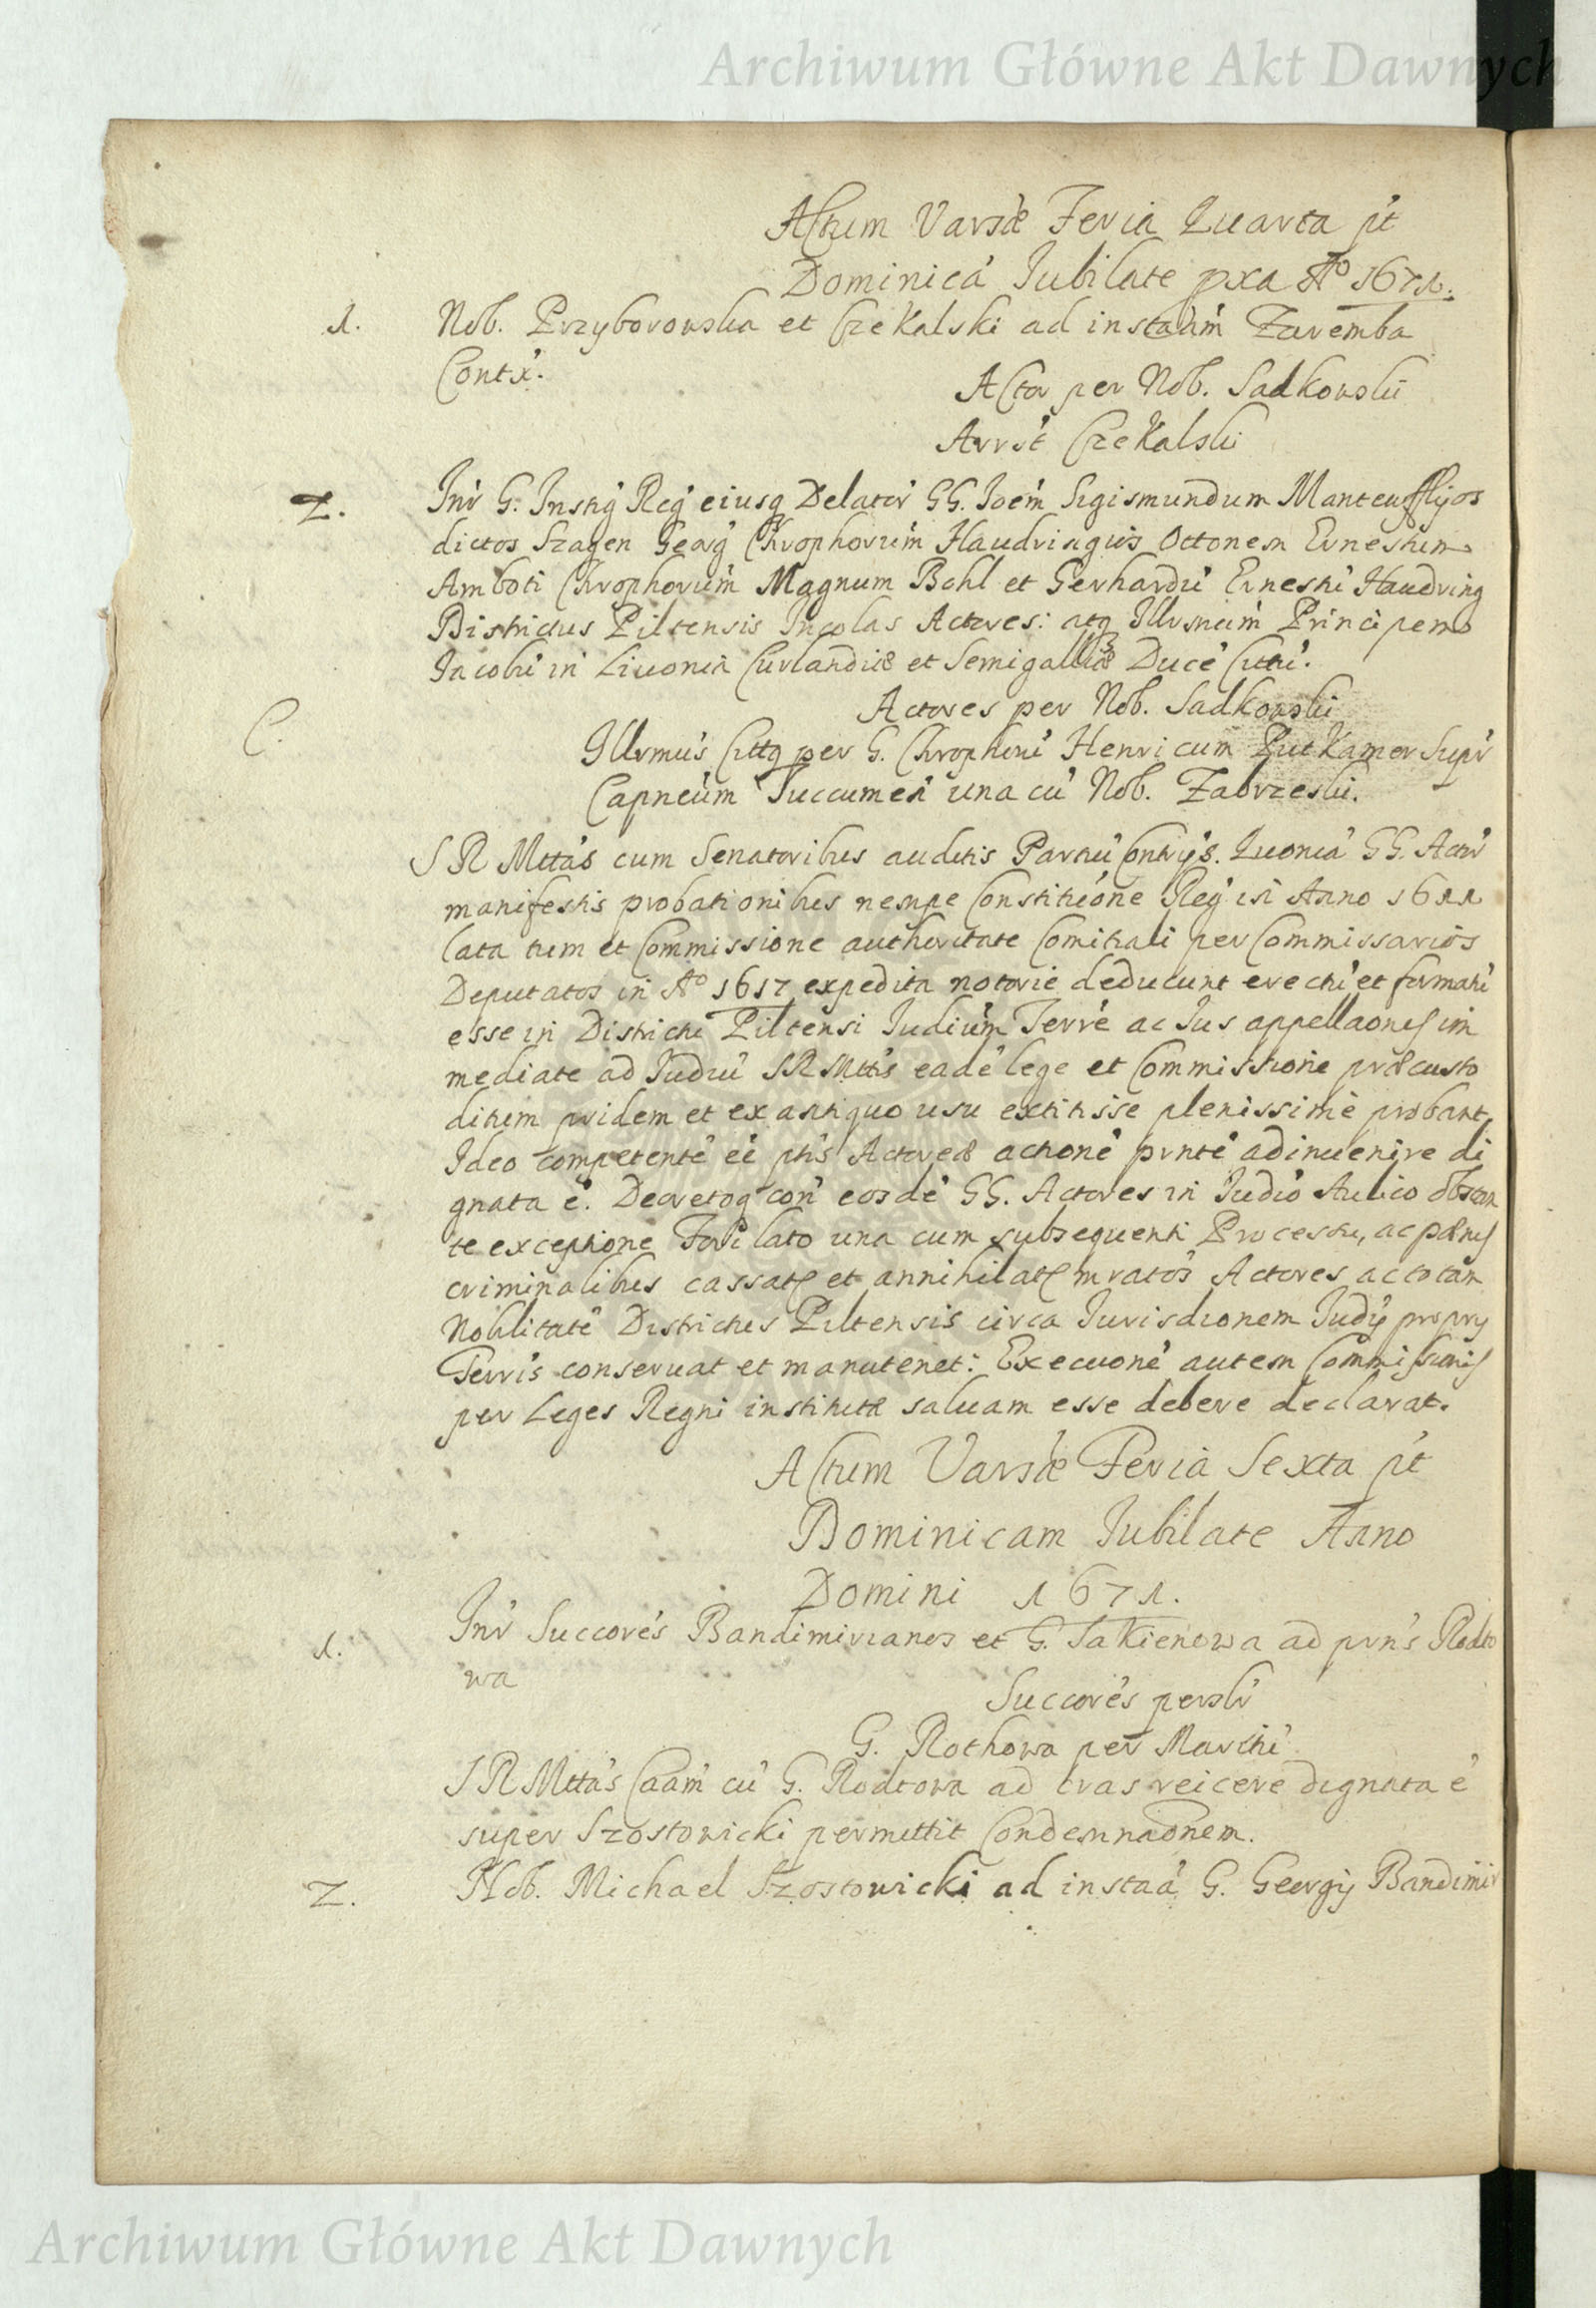 Archiwum Główne Akt Dawnych
Actum Varsæ Feria Quarta pt
Dominicā Iubilate pxa Aº 1671.
1. Nob. Przyborowska et CzeKalski ad instaām Zaremba
Contx.
Actor per Nob. Sadkowski
Arrst CzeKalski
2. Inr G. Instig Reg eiusq Delator GG. Joēm Sigismundum Manteufflijos
dictos Szagen Georg Chrophorum Haudringios Ottonem Ernestum
Amboti Chrophorum Magnum Bohl et Gerhardū Ernestū Haudring
Districtus Piltensis Incolas Actores: atq Principem
Jacobū in Livonia Curlandiæ et Semigalliæ Ducē Cittū.
Actores per Nob. Sadkowski
C. Illrmus Cittq per G. Chrophorū Henricum PutKamer Supr
Capneum Tuccumen una cū Nob. Zabrzeski.
S R Mttas cum Senatoribus auditis Partiū Contrijs. Quoniā GG. Actor
manifestis probationibus nempe Constitutione Reg in Anno 1611
lata tum et Commissione authoritate Comitiali per Commissarios
Deputatos in Aº 1617 expedita notorie deducunt erectū et formatū
esse in Districtu Piltensi Iudium Terre ac Ius appellaonis im
mediate ad Iudiū SRMttis eadē lege et Commissione præcusto
ditum pridem et ex antiquo usu extitisse plenissime probant,
Ideo competentē eē ptis Actoreæ actionē pnntē adinvenire di
gnata ē. Decretoq con eosdē GG. Actores in Iudio Aulico obstan
te exceptione Fori lato una cum subsequenti Processu, ac pænis
criminalibus cassatis et annihilatis mratos Actores ac totam
Nobilitatē Districtus Piltensis circa Iurisdionem Iudij proprij
Terris conservat et manutenet: Execuonē autem Commissionis
per Leges Regni institutæ salvam esse debere declarat.
Actum Varsæ Feria Sexta pt
Dominicam Iubilate Anno
Domini 1671.
1. Inr Succores Bandimirianos et G. SaKienowa ad prns Rodto
wa
Succores perslr
G. Rothowa per Marchū
S R Mttas Caam cū G. Rodtowa ad cras reicere dignata ē
super Szostowicki permittit Condemnaonem.
2. Nob. Michael Szostowicki ad instaā G. Georgij Bandimir
Archiwum Główne Akt Dawnych